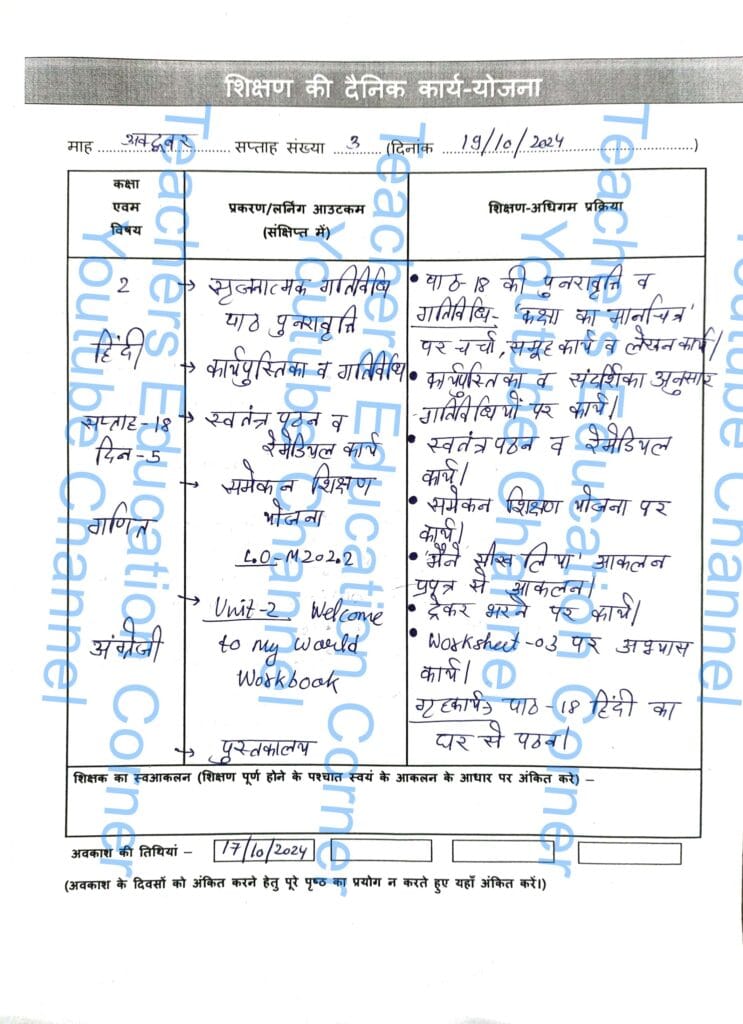 शिक्षण की दैनिक कार्य-योजना
माह अक्टूबर सप्ताह संख्या 3 (दिनांक 19/10/2024)
कक्षा
एवम
विषय
प्रकरण/लर्निंग आउटकम
(संक्षिप्त में)
शिक्षण-अधिगम प्रक्रिया
2
हिंदी
सप्ताह-18
दिन-5
गणित
अंग्रेजी
→ सृजनात्मक गतिविधि
पाठ पुनरावृत्ति
→ कार्यपुस्तिका व गतिविधि
→ स्वतंत्र पठन व
रेमेडियल कार्य
→ समेकन शिक्षण
योजना
L.O-M202.2
→ Unit-2 Welcome
to my World
Workbook
→ पुस्तकालय
• पाठ-18 की पुनरावृत्ति व
गतिविधि- 'कक्षा का मानचित्र'
पर चर्चा, समूह कार्य व लेखन कार्य।
• कार्यपुस्तिका व संदर्शिका अनुसार
गतिविधियों पर कार्य।
• स्वतंत्र पठन व रेमेडियल
कार्य।
• समेकन शिक्षण योजना पर
कार्य।
• 'मैंने सीख लिया' आकलन
प्रपत्र से आकलन।
• ट्रेकर भरने पर कार्य।
• Worksheet-03 पर अभ्यास
कार्य।
गृहकार्य→ पाठ-18 हिंदी का
घर से पठन।
शिक्षक का स्वआकलन (शिक्षण पूर्ण होने के पश्चात स्वयं के आकलन के आधार पर अंकित करे) –
अवकाश की तिथियां – 17/10/2024
(अवकाश के दिवसों को अंकित करने हेतु पूरे पृष्ठ का प्रयोग न करते हुए यहाँ अंकित करें।)
Teachers Education Corner
Youtube Channel
Teachers Education Corner
Youtube Channel
Teachers Education Corner
Youtube Channel